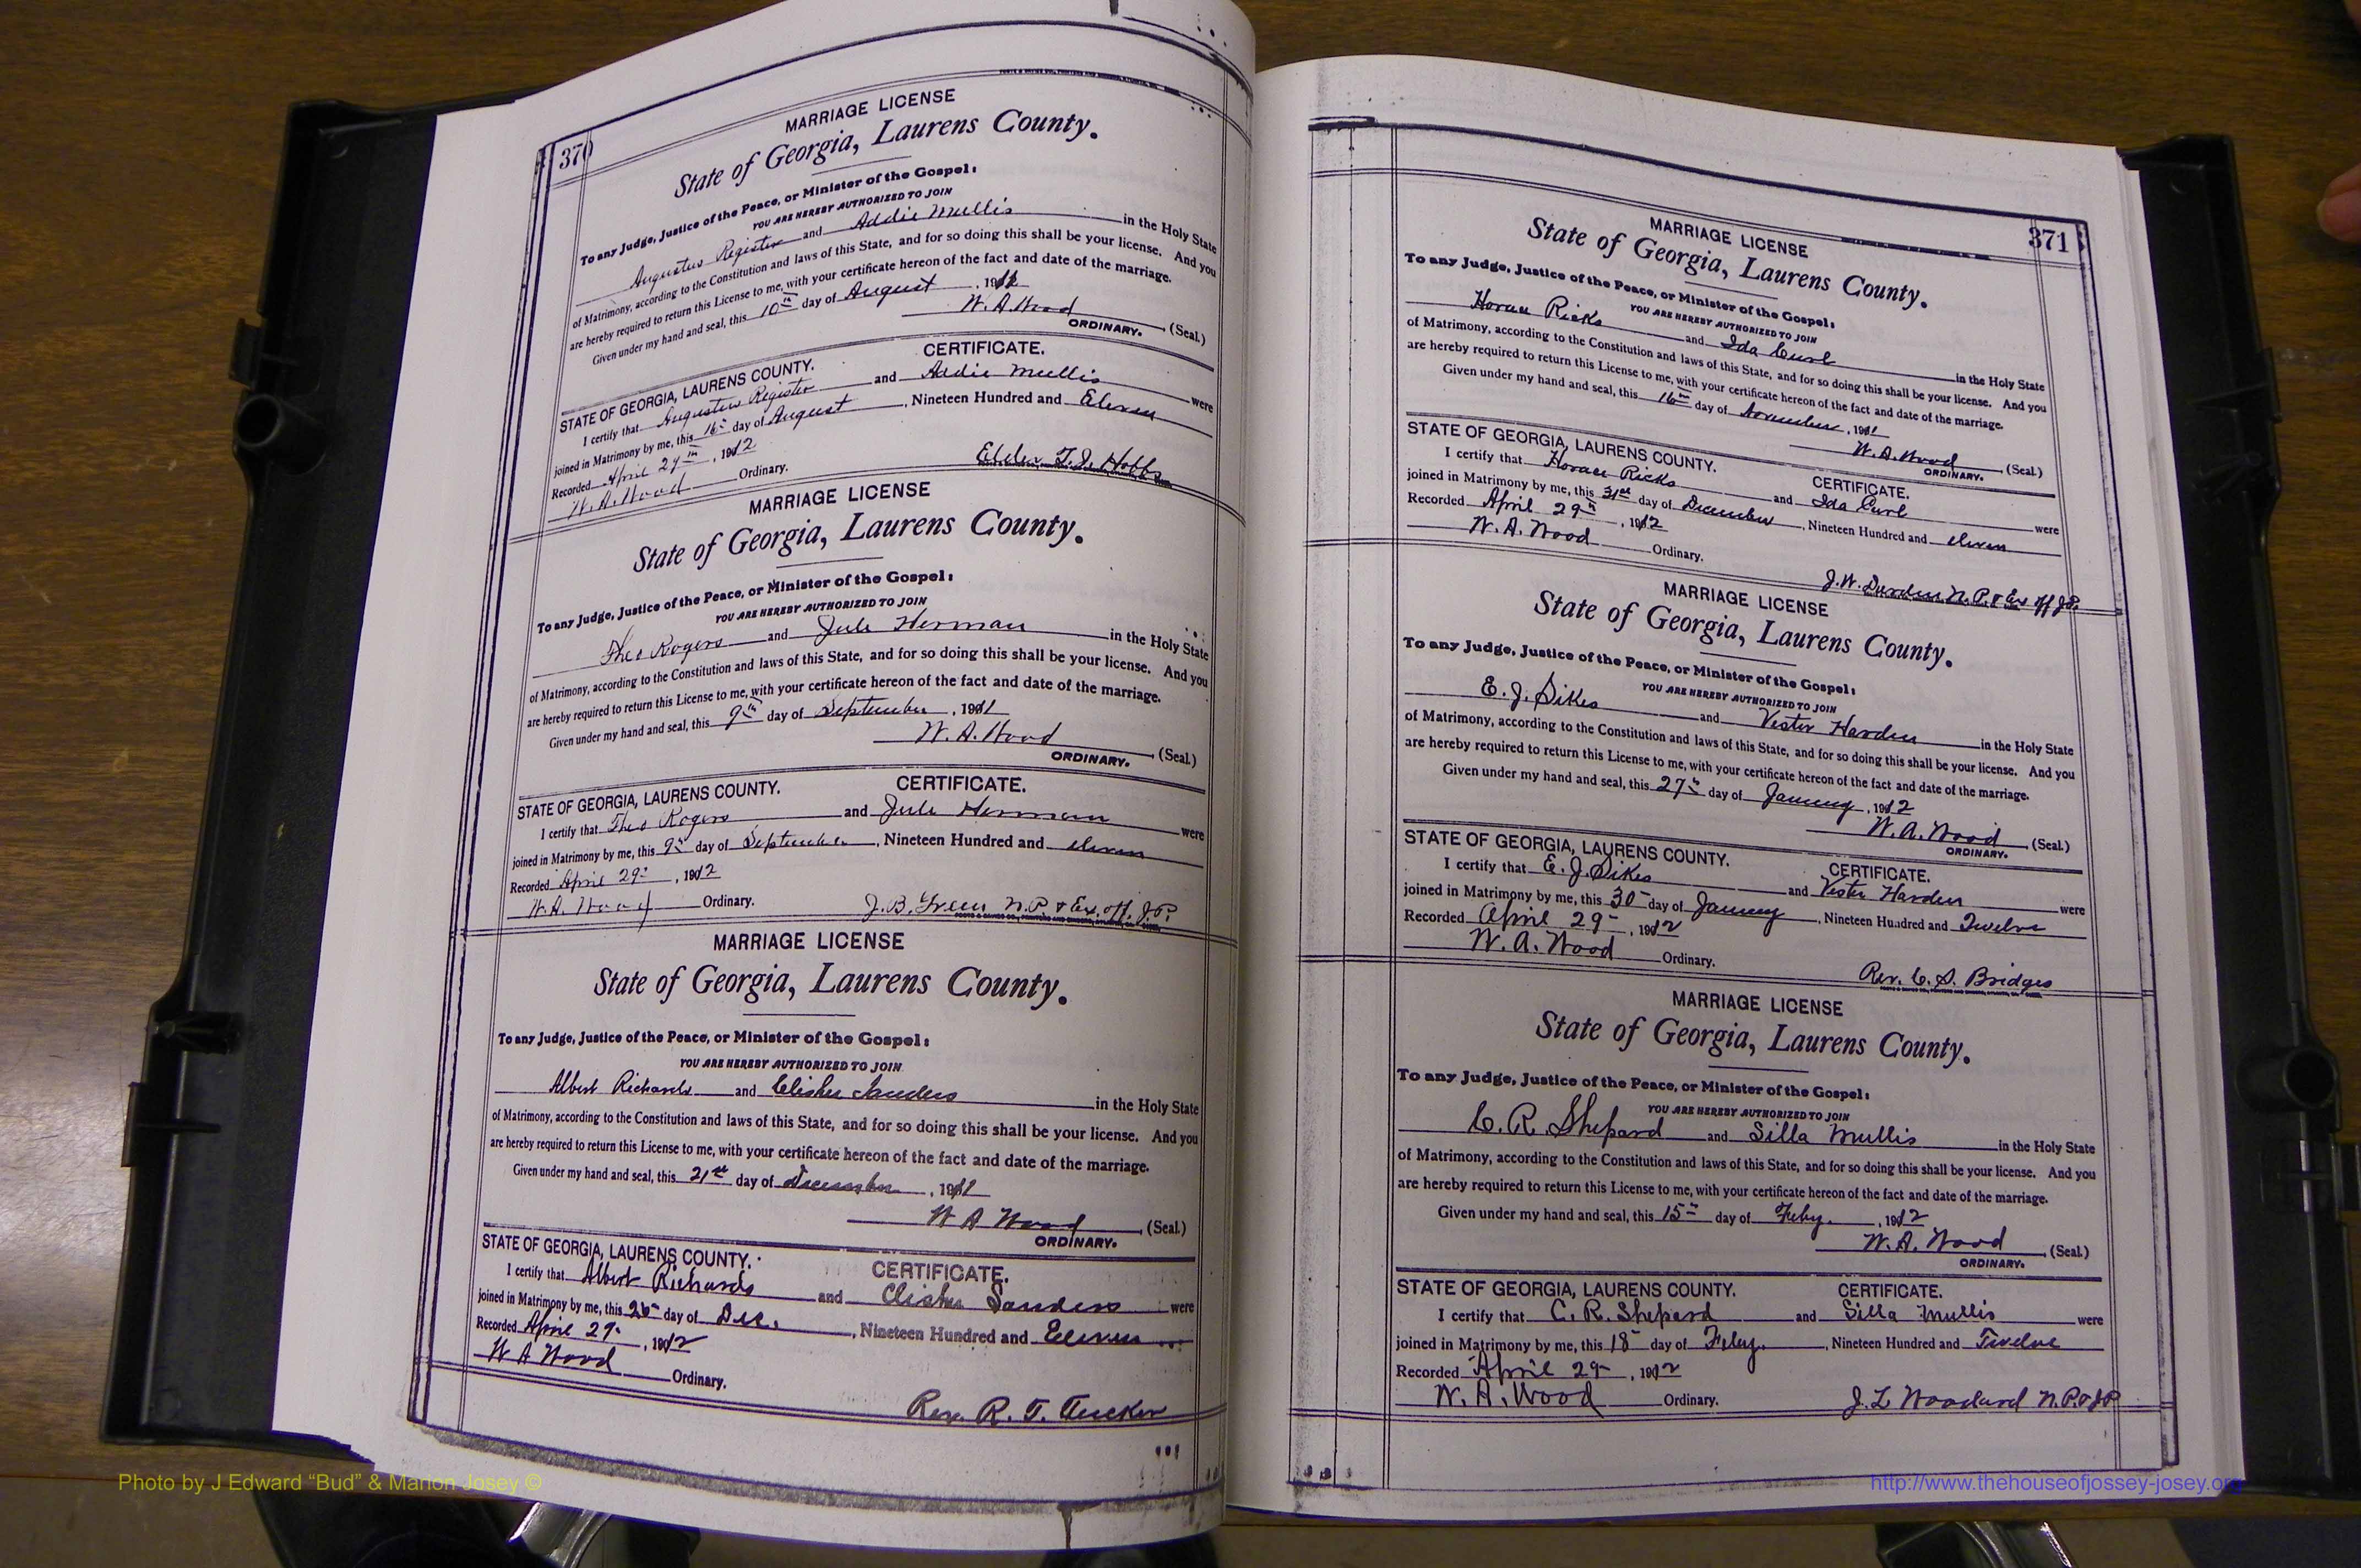 370
MARRIAGE LICENSE
State of Georgia, Laurens County.
To any Judge, Justice of the Peace, or Minister of the Gospel:
YOU ARE HEREBY AUTHORIZED TO JOIN
Augustus Register and Addie Mullis in the Holy State
of Matrimony, according to the Constitution and laws of this State, and for so doing this shall be your license. And you
are hereby required to return this License to me, with your certificate hereon of the fact and date of the marriage.
Given under my hand and seal, this 10th day of August, 191
W. A. Wood (Seal.)
ORDINARY.
STATE OF GEORGIA, LAURENS COUNTY. CERTIFICATE.
I certify that Augustus Register and Addie Mullis were
joined in Matrimony by me, this 16th day of August, Nineteen Hundred and Eleven
Recorded April 29th, 1912
W. A. Wood Ordinary. Elder T. J. Hobbs
MARRIAGE LICENSE
State of Georgia, Laurens County.
To any Judge, Justice of the Peace, or Minister of the Gospel:
YOU ARE HEREBY AUTHORIZED TO JOIN
Theo Rogers and Jule Herman in the Holy State
of Matrimony, according to the Constitution and laws of this State, and for so doing this shall be your license. And you
are hereby required to return this License to me, with your certificate hereon of the fact and date of the marriage.
Given under my hand and seal, this 9th day of September, 1911
W. A. Wood (Seal.)
ORDINARY.
STATE OF GEORGIA, LAURENS COUNTY. CERTIFICATE.
I certify that Theo Rogers and Jule Herman were
joined in Matrimony by me, this 9th day of September, Nineteen Hundred and eleven
Recorded April 29th, 1912
W. A. Wood Ordinary. J. B. Green N.P. & Ex. off. J.P.
MARRIAGE LICENSE
State of Georgia, Laurens County.
To any Judge, Justice of the Peace, or Minister of the Gospel:
YOU ARE HEREBY AUTHORIZED TO JOIN
Albert Richards and Clisher Sanders in the Holy State
of Matrimony, according to the Constitution and laws of this State, and for so doing this shall be your license. And you
are hereby required to return this License to me, with your certificate hereon of the fact and date of the marriage.
Given under my hand and seal, this 21st day of December, 1911
W A Wood (Seal.)
ORDINARY.
STATE OF GEORGIA, LAURENS COUNTY. CERTIFICATE.
I certify that Albert Richards and Clisher Sanders were
joined in Matrimony by me, this 26th day of Dec., Nineteen Hundred and Eleven
Recorded April 29th, 1912
W A Wood Ordinary.
Rev. R. T. Tucker
371
MARRIAGE LICENSE
State of Georgia, Laurens County.
To any Judge, Justice of the Peace, or Minister of the Gospel:
YOU ARE HEREBY AUTHORIZED TO JOIN
Horace Ricks and Ida Curl in the Holy State
of Matrimony, according to the Constitution and laws of this State, and for so doing this shall be your license. And you
are hereby required to return this License to me, with your certificate hereon of the fact and date of the marriage.
Given under my hand and seal, this 16th day of November, 1911
W. A. Wood (Seal.)
ORDINARY.
STATE OF GEORGIA, LAURENS COUNTY. CERTIFICATE.
I certify that Horace Ricks and Ida Curl were
joined in Matrimony by me, this 31st day of December, Nineteen Hundred and eleven
Recorded April 29th, 1912
W. A. Wood Ordinary.
J. W. Durden N.P. & Ex off J.P.
MARRIAGE LICENSE
State of Georgia, Laurens County.
To any Judge, Justice of the Peace, or Minister of the Gospel:
YOU ARE HEREBY AUTHORIZED TO JOIN
E. J. Sikes and Vester Harden in the Holy State
of Matrimony, according to the Constitution and laws of this State, and for so doing this shall be your license. And you
are hereby required to return this License to me, with your certificate hereon of the fact and date of the marriage.
Given under my hand and seal, this 27th day of January, 1912
W. A. Wood (Seal.)
ORDINARY.
STATE OF GEORGIA, LAURENS COUNTY. CERTIFICATE.
I certify that E. J. Sikes and Vester Harden were
joined in Matrimony by me, this 30th day of January, Nineteen Hundred and Twelve
Recorded April 29th, 1912
W. A. Wood Ordinary.
Rev. C. S. Bridges
MARRIAGE LICENSE
State of Georgia, Laurens County.
To any Judge, Justice of the Peace, or Minister of the Gospel:
YOU ARE HEREBY AUTHORIZED TO JOIN
C. R. Shepard and Silla Mullis in the Holy State
of Matrimony, according to the Constitution and laws of this State, and for so doing this shall be your license. And you
are hereby required to return this License to me, with your certificate hereon of the fact and date of the marriage.
Given under my hand and seal, this 15th day of Feby., 1912
W. A. Wood (Seal.)
ORDINARY.
STATE OF GEORGIA, LAURENS COUNTY. CERTIFICATE.
I certify that C. R. Shepard and Silla Mullis were
joined in Matrimony by me, this 18th day of Feby., Nineteen Hundred and Twelve
Recorded April 29th, 1912
W. A. Wood Ordinary. J. L. Woodard N.P. & J.P.
Photo by J Edward “Bud” & Marion Josey ©
http://www.thehouseofjossey-josey.org